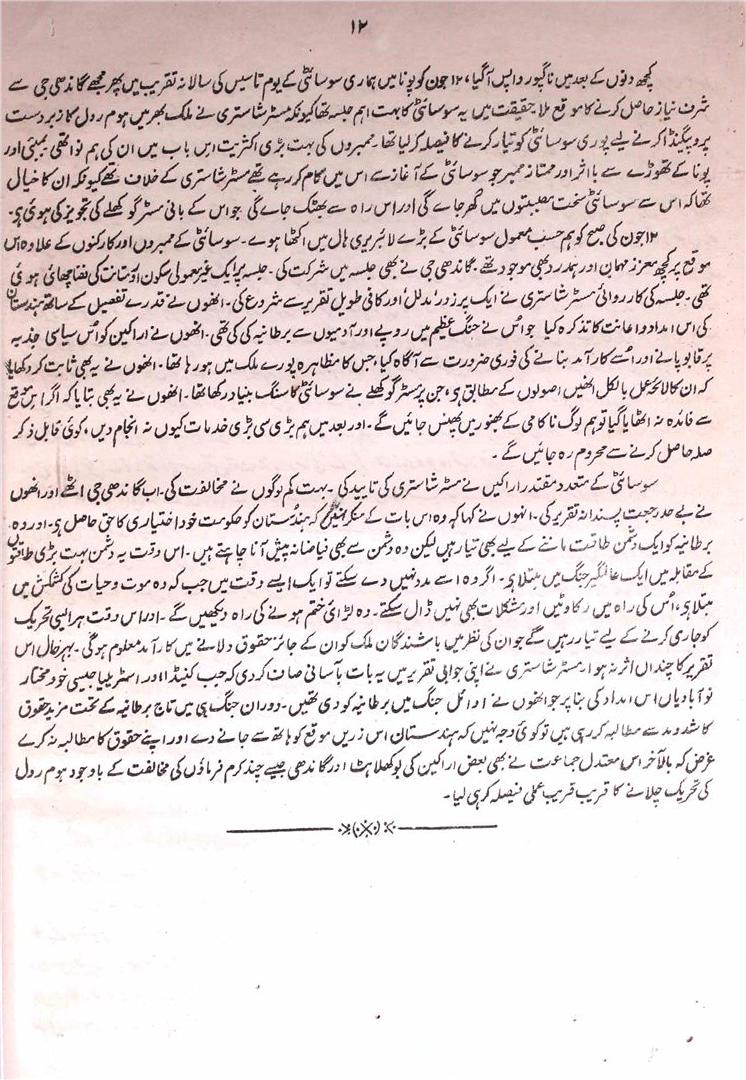 ۱۲
کچھ دنوں کے بعد میں ناگپور واپس آگیا، ۱۲ جون کو پونا میں ہماری سوسائٹی کے یوم تاسیس کی سالانہ تقریب میں پھر مجھے گاندھی جی سے
شرف نیاز حاصل کرنے کا موقع ملا۔ حقیقت میں یہ سوسائٹی کا بہت اہم جلسہ تھا کیونکہ مسٹر شاستری نے ملک بھر میں ہوم رول کا زبردست
پروپگنڈا کرنے لیے پوری سوسائٹی کو تیار کرنے کا فیصلہ کر لیا تھا۔ ممبروں کی بہت بڑی اکثریت اس باب میں ان کی ہم نوا تھی بمبئی اور
پونا کے تھوڑے سے با اثر اور ممتاز ممبر جو سوسائٹی کے آغاز سے اس میں کام کر رہے تھے مسٹر شاستری کے خلاف تھے کیونکہ ان کا خیال
تھا کہ اس سے سوسائٹی سخت مصیبتوں میں گھر جاے گی اور اس راہ سے بھٹک جاے گی جو اس کے بانی مسٹر گوکھلے کی تجویز کی ہوئی ہی۔
۱۲ جون کی صبح کو ہم حسب معمول سوسائٹی کے بڑے لائبریری ہال میں اکٹھا ہوے۔ سوسائٹی کے ممبروں اور کارکنوں کے علاوہ اس
موقع پر کچھ معزز مہمان اور ہمدرد بھی موجود تھے۔ گاندھی جی نے بھی جلسہ میں شرکت کی۔ جلسہ پر ایک غیر معمولی سکون اور متانت کی فضا چھائی ہوئی
تھی۔ جلسہ کی کارروائی مسٹر شاستری نے ایک پرزور، مدلل اور کافی طویل تقریر سے شروع کی۔ انھوں نے قدرے تفصیل کے ساتھ ہندستان
کی اس امداد و اعانت کا تذکرہ کیا جو اُس نے جنگ عظیم میں روپے اور آدمیوں سے برطانیہ کی کی تھی۔ انھوں نے اراکین کو اُس سیاسی جذبہ
پر قابو پانے اور اُسے کارآمد بنانے کی فوری ضرورت سے آگاہ کیا، جس کا مظاہرہ پورے ملک میں ہو رہا تھا۔ انھوں نے یہ بھی ثابت کر دکھایا
کہ ان کا لائحۂ عمل بالکل انھیں اصولوں کے مطابق ہی، جن پر مسٹر گوکھلے نے سوسائٹی کا سنگ بنیاد رکھا تھا۔ انھوں نے یہ بھی بتایا کہ اگر اس موقع
سے فائدہ نہ اٹھایا گیا تو ہم لوگ ناکامی کے بھنور میں پھنس جائیں گے۔ اور بعد میں ہم بڑی سی بڑی خدمات کیوں نہ انجام دیں، کوئی قابل ذکر
صلہ حاصل کرنے سے محروم رہ جائیں گے۔
سوسائٹی کے متعدد مقتدر اراکین نے مسٹر شاستری کی تایید کی۔ بہت کم لوگوں نے مخالفت کی۔ اب گاندھی جی اٹھے اور انھوں
نے بے حد رجعت پسندانہ تقریر کی۔ انہوں نے کہا کہ وہ اس بات کے منکر نہیں کہ ہندُستان کو حکومت خود اختیاری کا حق حاصل ہی۔ اور وہ
برطانیہ کو ایک دشمن طاقت ماننے کے لیے بھی تیار ہیں لیکن وہ دشمن سے بھی فیاضانہ پیش آنا چاہتے ہیں۔ اس وقت یہ دشمن بہت بڑی طاقتوں
کے مقابلہ میں ایک عالمگیر جنگ میں مبتلا ہی۔ اگر وہ اسے مدد نہیں دے سکتے تو ایک ایسے وقت میں جب کہ وہ موت و حیات کی کشمکش میں
مبتلا ہی، اُس کی راہ میں رکاوٹیں اور مشکلات بھی نہیں ڈال سکتے۔ وہ لڑائی ختم ہونے کی راہ دیکھیں گے۔ اور اس وقت ہر ایسی تحریک
کو جاری کرنے کے لیے تیار رہیں گے جو ان کی نظر میں باشندگان ملک کو ان کے جائز حقوق دلانے میں کارآمد معلوم ہوگی۔ بہرحال اس
تقریر کا چنداں اثر نہ ہوا۔ مسٹر شاستری نے اپنی جوابی تقریر میں یہ بات بآسانی صاف کر دی کہ جب کنیڈا اور اسٹریلیا جیسی خود مختار
نو آبادیاں اس امداد کی بنا پر جو انھوں نے اوائل جنگ میں برطانیہ کو دی تھیں۔ دوران جنگ ہی میں تاج برطانیہ کے تحت مزید حقوق
کا شد و مد سے مطالبہ کر رہی ہیں تو کوئی وجہ نہیں کہ ہندستان اس زریں موقع کو ہاتھ سے جانے دے اور اپنے حقوق کا مطالبہ نہ کرے
غرض کہ بالآخر اس معتدل جماعت نے بھی بعض اراکین کی بوکھلاہٹ اور گاندھی جیسے چند کرم فرماؤں کی مخالفت کے باوجود ہوم رول
کی تحریک چلانے کا قریب قریب عملی فیصلہ کر ہی لیا۔